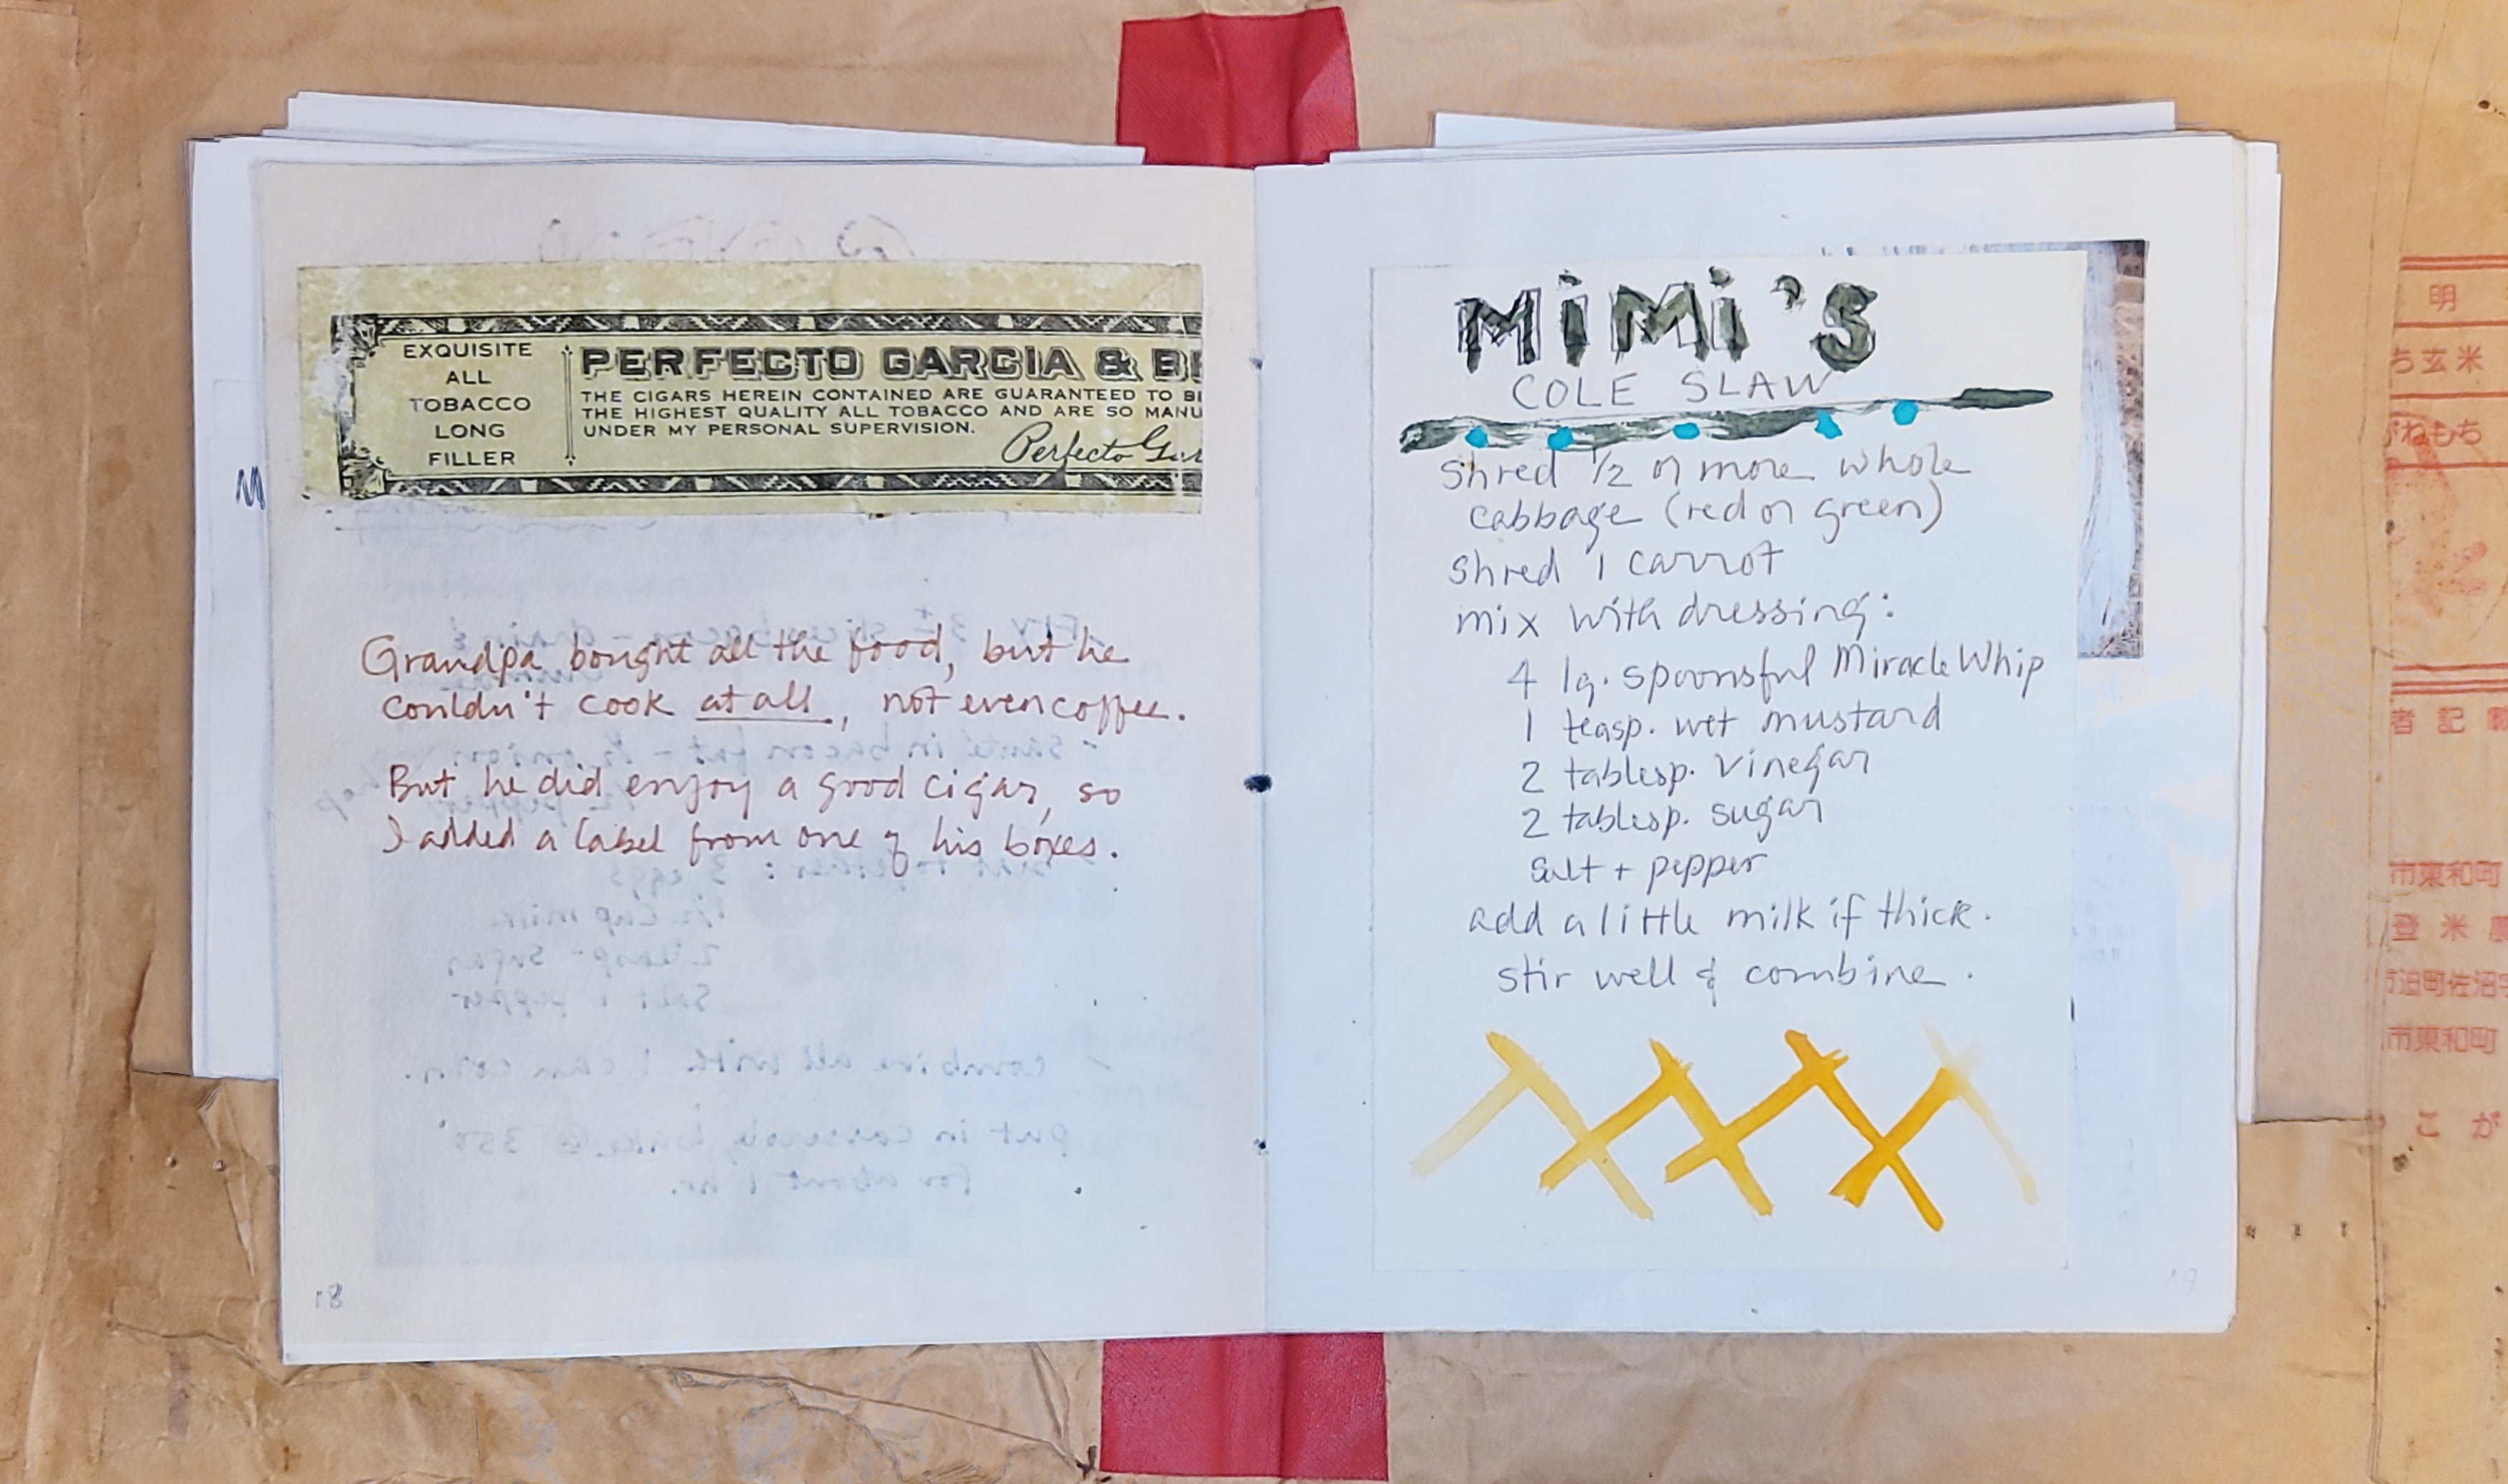 EXQUISITE
ALL
TOBACCO
LONG
FILLER
PERFECTO GARCIA & B
THE CIGARS HEREIN CONTAINED ARE GUARANTEED TO B
THE HIGHEST QUALITY ALL TOBACCO AND ARE SO MANU
UNDER MY PERSONAL SUPERVISION.
Perfecto Gar
M
Grandpa bought all the food, but he
couldn't cook at all, not even coffee.
But he did enjoy a good cigar, so
I added a label from one of his boxes.
18
MiMi's
COLE SLAW
shred 1/2 or more whole
cabbage (red or green)
shred 1 carrot
mix with dressing:
4 lg. spoonsful Miracle Whip
1 teasp. wet mustard
2 tablesp. vinegar
2 tablesp. sugar
salt + pepper
add a little milk if thick.
stir well & combine.
19
明
ち玄米
ねもち
者記載
市東和町
登米
迫町佐沼字
市東和町
こが